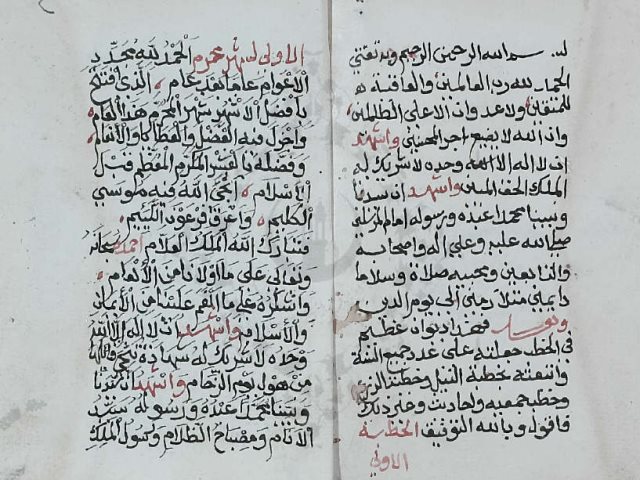 بسم الله الرحمن الرحيم وبه ثقتي
الحمد لله رب العالمين والعاقبة
للمتقين ولا عدوان الا على الظالمين
وان الله لا يضيع اجر المحسنين واشهد
ان لا اله الا الله وحده لا شريك له
الملك الحق المبين واشهد ان سيدنا
ونبينا محمدا عبده ورسوله امام المرسلين
صلى الله عليه وعلى اله واصحابه
والتابعين ومحبيه صلاة وسلاما
دايمين متلازمين الى يوم الدين
وبعد فهذا ديوان عظيم
في الخطب جعلته على عدد جميع السنة
واتبعته بخطبة النيل وخطبة
وخطب جمعيه واحاديث وغير ذلك
فاقول وبالله التوفيق الخطبة
الاولى
الاولى لشهر محرم الحمد لله مجدد
الاعوام عاما بعد عام الذي افتتح
بافضل الاشهر شهر المحرم هذا العام
واجزل فيه الفضل والعطايا والانعام
وفضله بالقدر المكرم المعظم قبل
الاسلام انجى الله فيه موسى
الكليم واغرق فرعون اللئيم
فتبارك الله الملك العلام احمده سبحانه
وتعالى على ما اولانا من الانعام
واشكره على ما الهم علينا من الايمان
والاسلام واشهد ان لا اله الا الله
وحده لا شريك له شهادة تنجي قائلها
من هول يوم الزحام واشهد ان سيدنا
ونبينا محمدا عبده ورسوله سيد
الانام ومصباح الظلام ورسول الملك